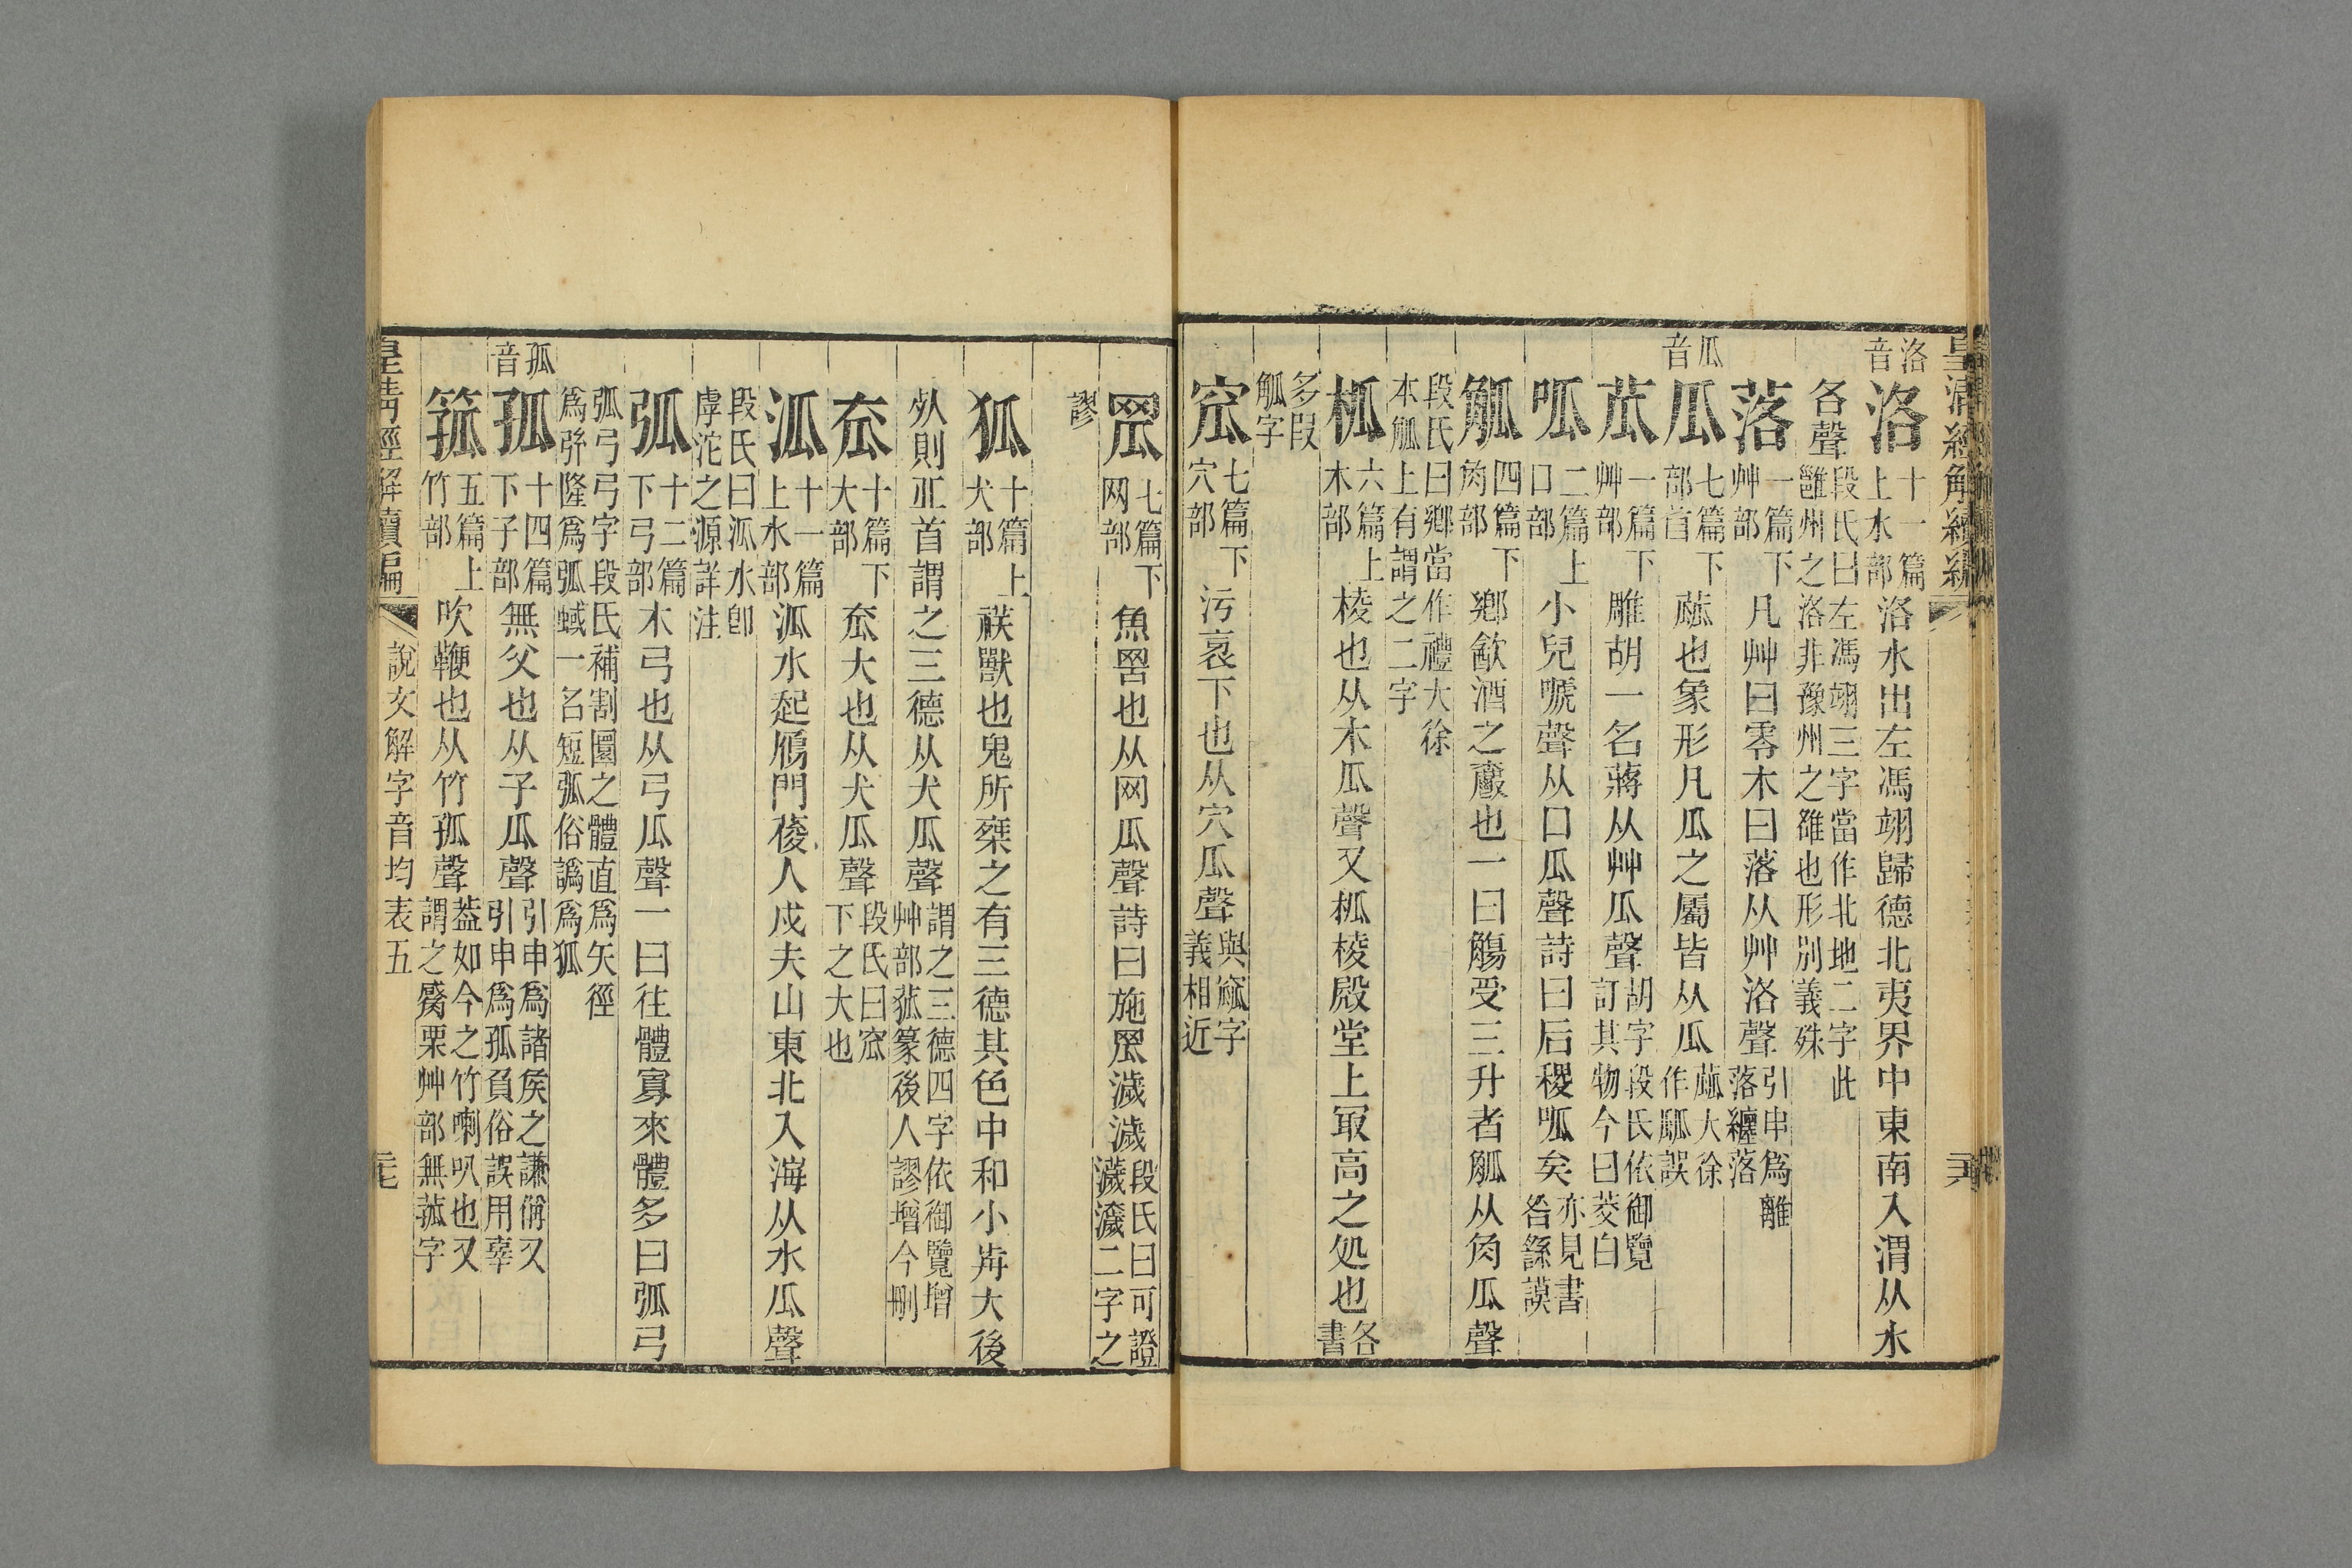 皇清經解續編
洛音 洛 十一篇上水部 洛水出左馮翊歸德北夷界中東南入渭从水
各聲 段氏曰左馮翊三字當作北地二字此雝州之洛非豫州之雒也形別義殊
落 一篇下艸部 凡艸曰零木曰落从艸洛聲 引申爲離落纏落
瓜音 瓜 七篇下部首 㼌也象形凡瓜之屬皆从瓜 㼌大徐作㼋誤
苽 一篇下艸部 雕胡一名蔣从艸瓜聲 胡字段氏依御覽訂其物今曰茭白
呱 二篇上口部 小兒嗁聲从口瓜聲詩曰后稷呱矣 亦見書咎繇謨
觚 四篇下𧢲部 鄉㱃酒之爵也一曰觴受三升者觚从𧢲瓜聲
段氏曰鄉當作禮大徐本觚上有謂之二字
柧 六篇上木部 棱也从木瓜聲又柧棱殿堂上冣高之処也 各書
多段觚字
窊 七篇下穴部 污衺下也从穴瓜聲 與窳字義相近
罛 七篇下网部 魚罟也从网瓜聲詩曰施罛濊濊 段氏曰可證濊瀎二字之
謬
狐 十篇上犬部 䄏獸也鬼所椉之有三德其色中和小歬大後
𣦸則丠首謂之三德从犬瓜聲 謂之三德四字依御覽增艸部菰篆後人謬增今刪
㚌 十篇下大部 㚌大也从大瓜聲 段氏曰窊下之大也
泒 十一篇上水部 泒水起鴈門葰人戍夫山東北入海从水瓜聲
段氏曰泒水卽虖沱之源詳注
弧 十二篇下弓部 木弓也从弓瓜聲一曰往體寡來體多曰弧弓
弧弓弓字段氏補割圜之體直爲矢徑爲弉隆爲弧蜮一名短弧俗譌爲狐
孤音 孤 十四篇下子部 無父也从子瓜聲 引申爲諸矦之謙偁又引申爲孤負俗誤用辜
箛 五篇上竹部 吹鞭也从竹孤聲 葢如今之竹喇叭也又謂之觱栗艸部無菰字
皇淸經解續編 說文解字音均表五